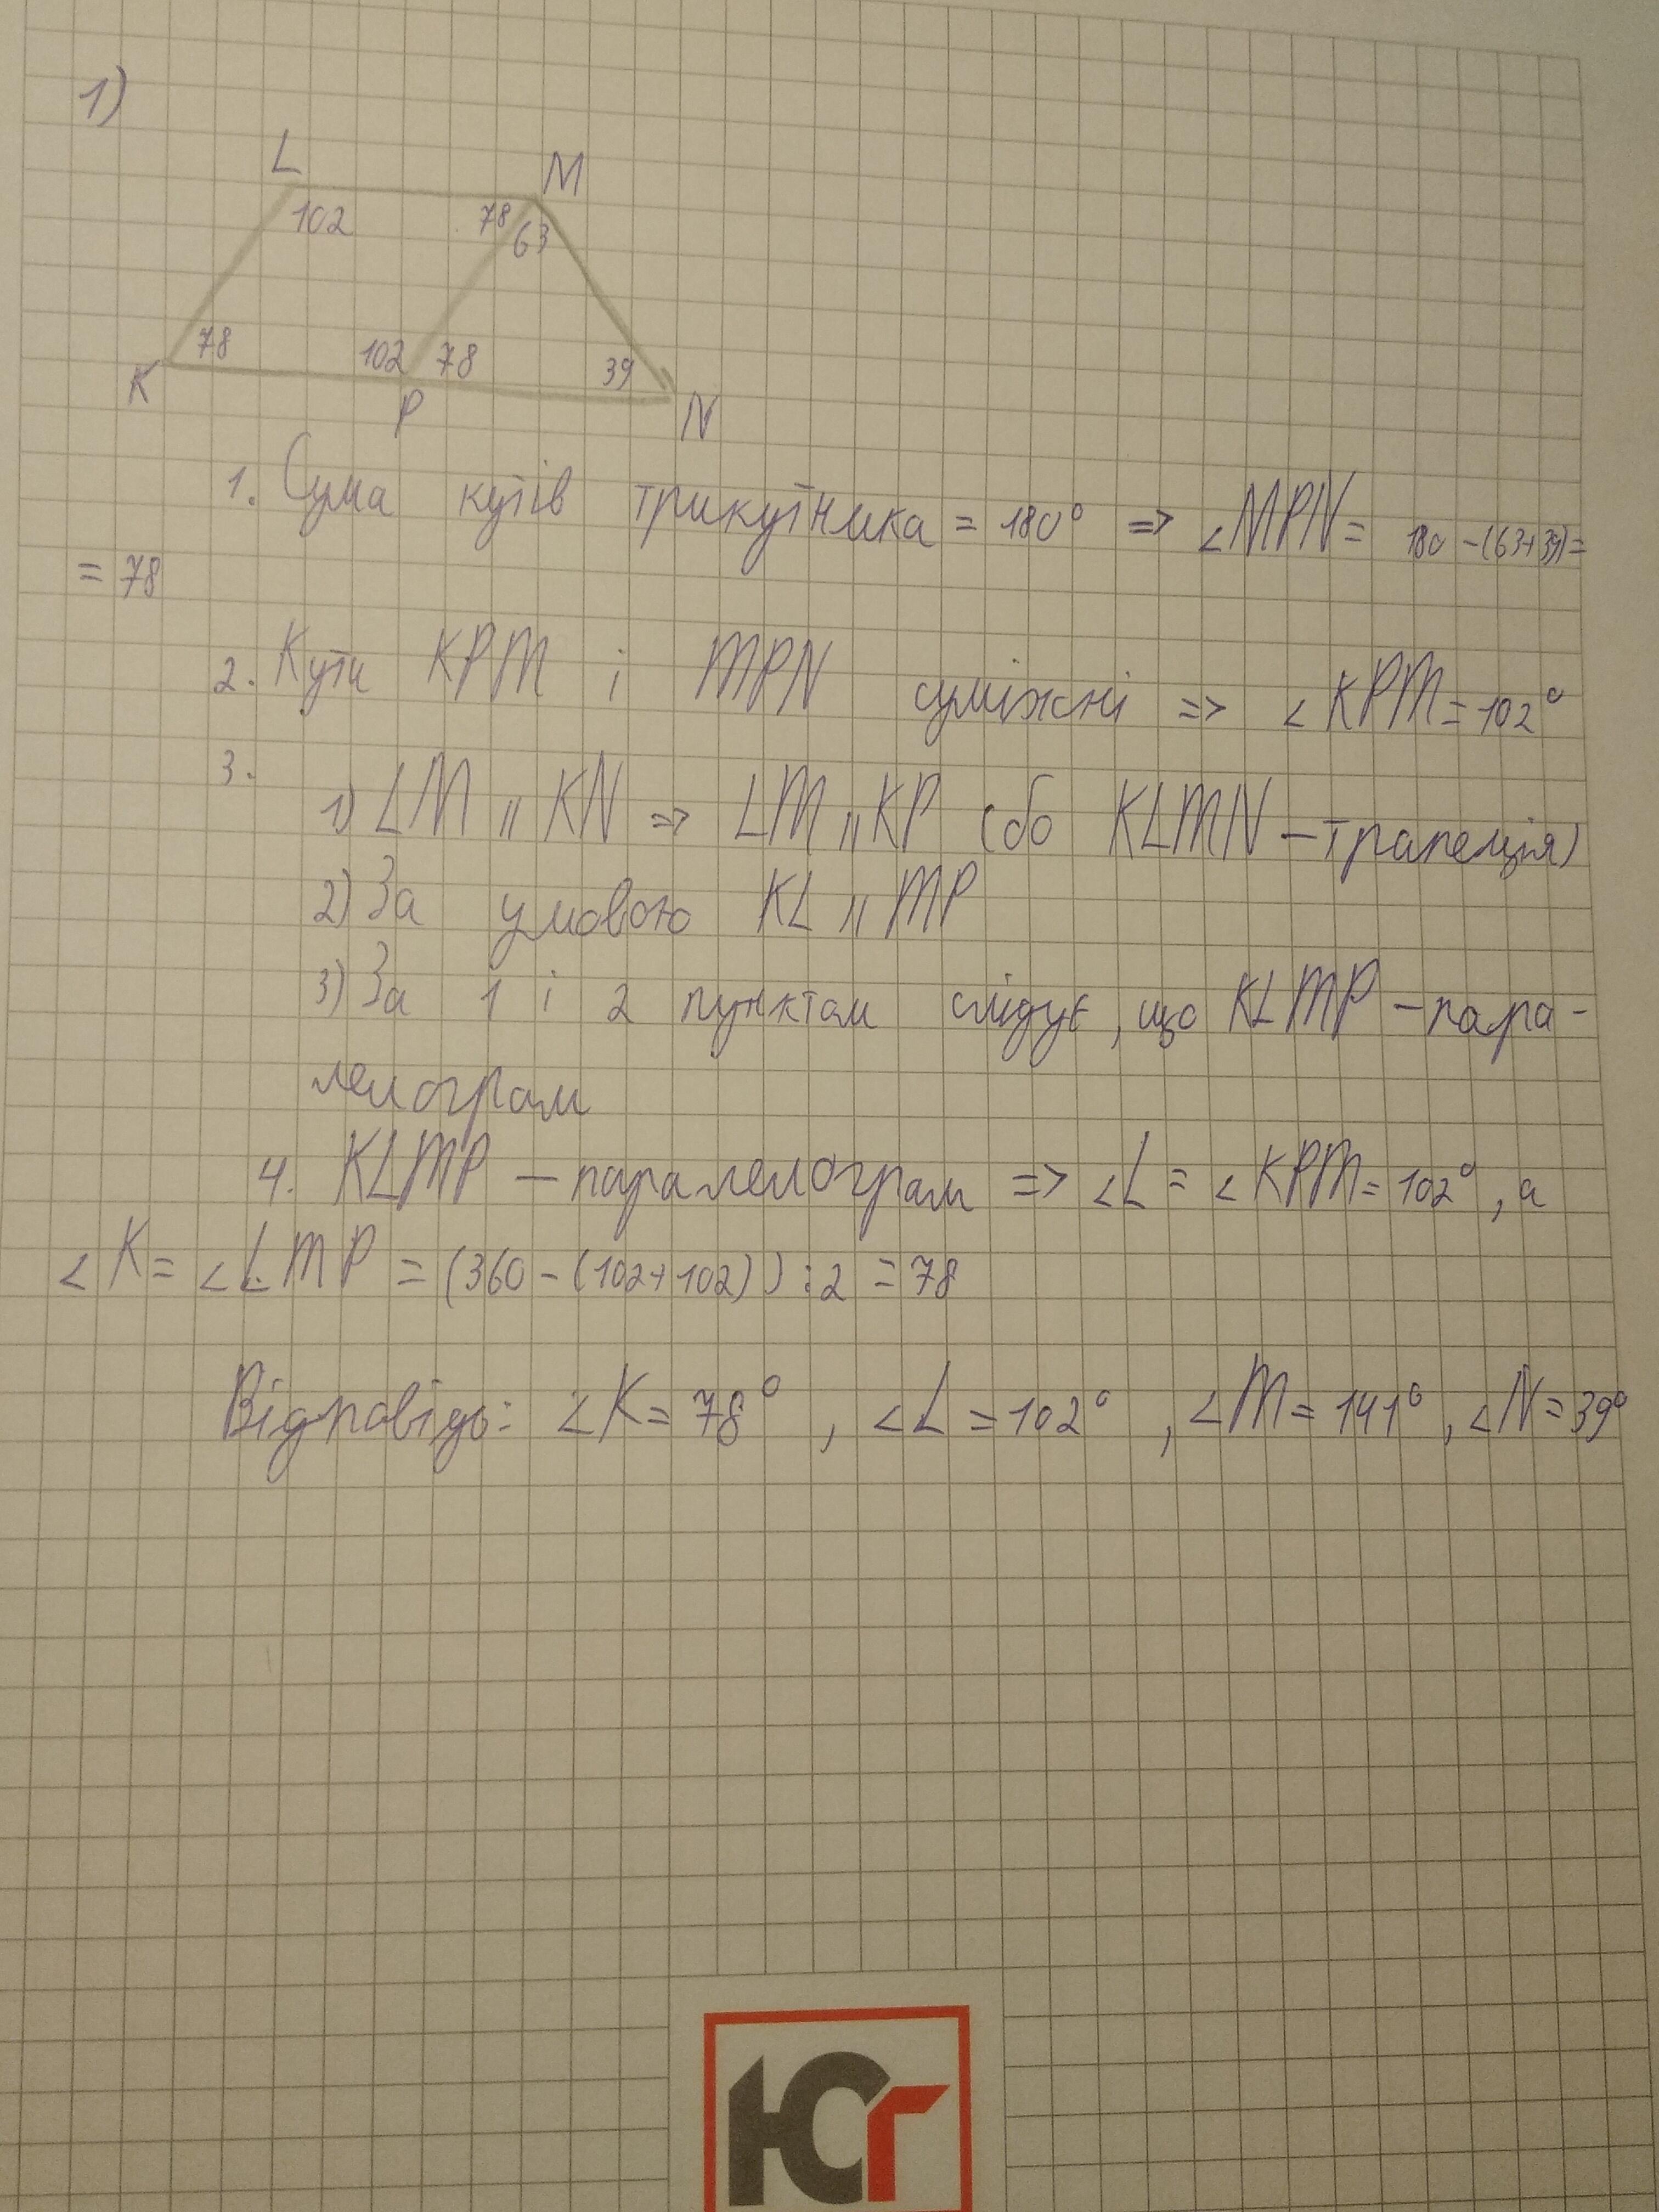 1)
L
M
102
78
63
78
102
78
39
K
P
N
1. Сума кутів трикутника = 180° => ∠MPN = 180 - (63+39) =
= 78
2. Кути KPM і MPN суміжні => ∠KPM = 102°
3.
1) LM || KN => LM || KP (бо KLMN – трапеція)
2) За умовою KL || MP
3) За 1 і 2 пунктом слідує, що KLMP – пара-
лелограм
4. KLMP – паралелограм => ∠L = ∠KPM = 102°, а
∠K = ∠LMP = (360 - (102+102)) : 2 = 78
Відповідь: ∠K = 78°, ∠L = 102°, ∠M = 141°, ∠N = 39°
Юг